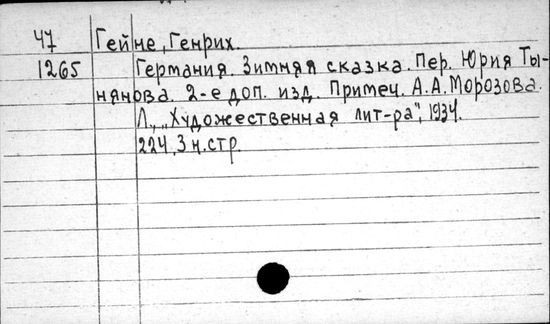 47 Гейне, Генрих.
1265 Германия. Зимняя сказка. Пер. Юрия Ты-
нянова. 2-е доп. изд. Примеч. А.А.Морозова.
Л., „Художественная лит-ра", 1934.
224, 3 н.стр.